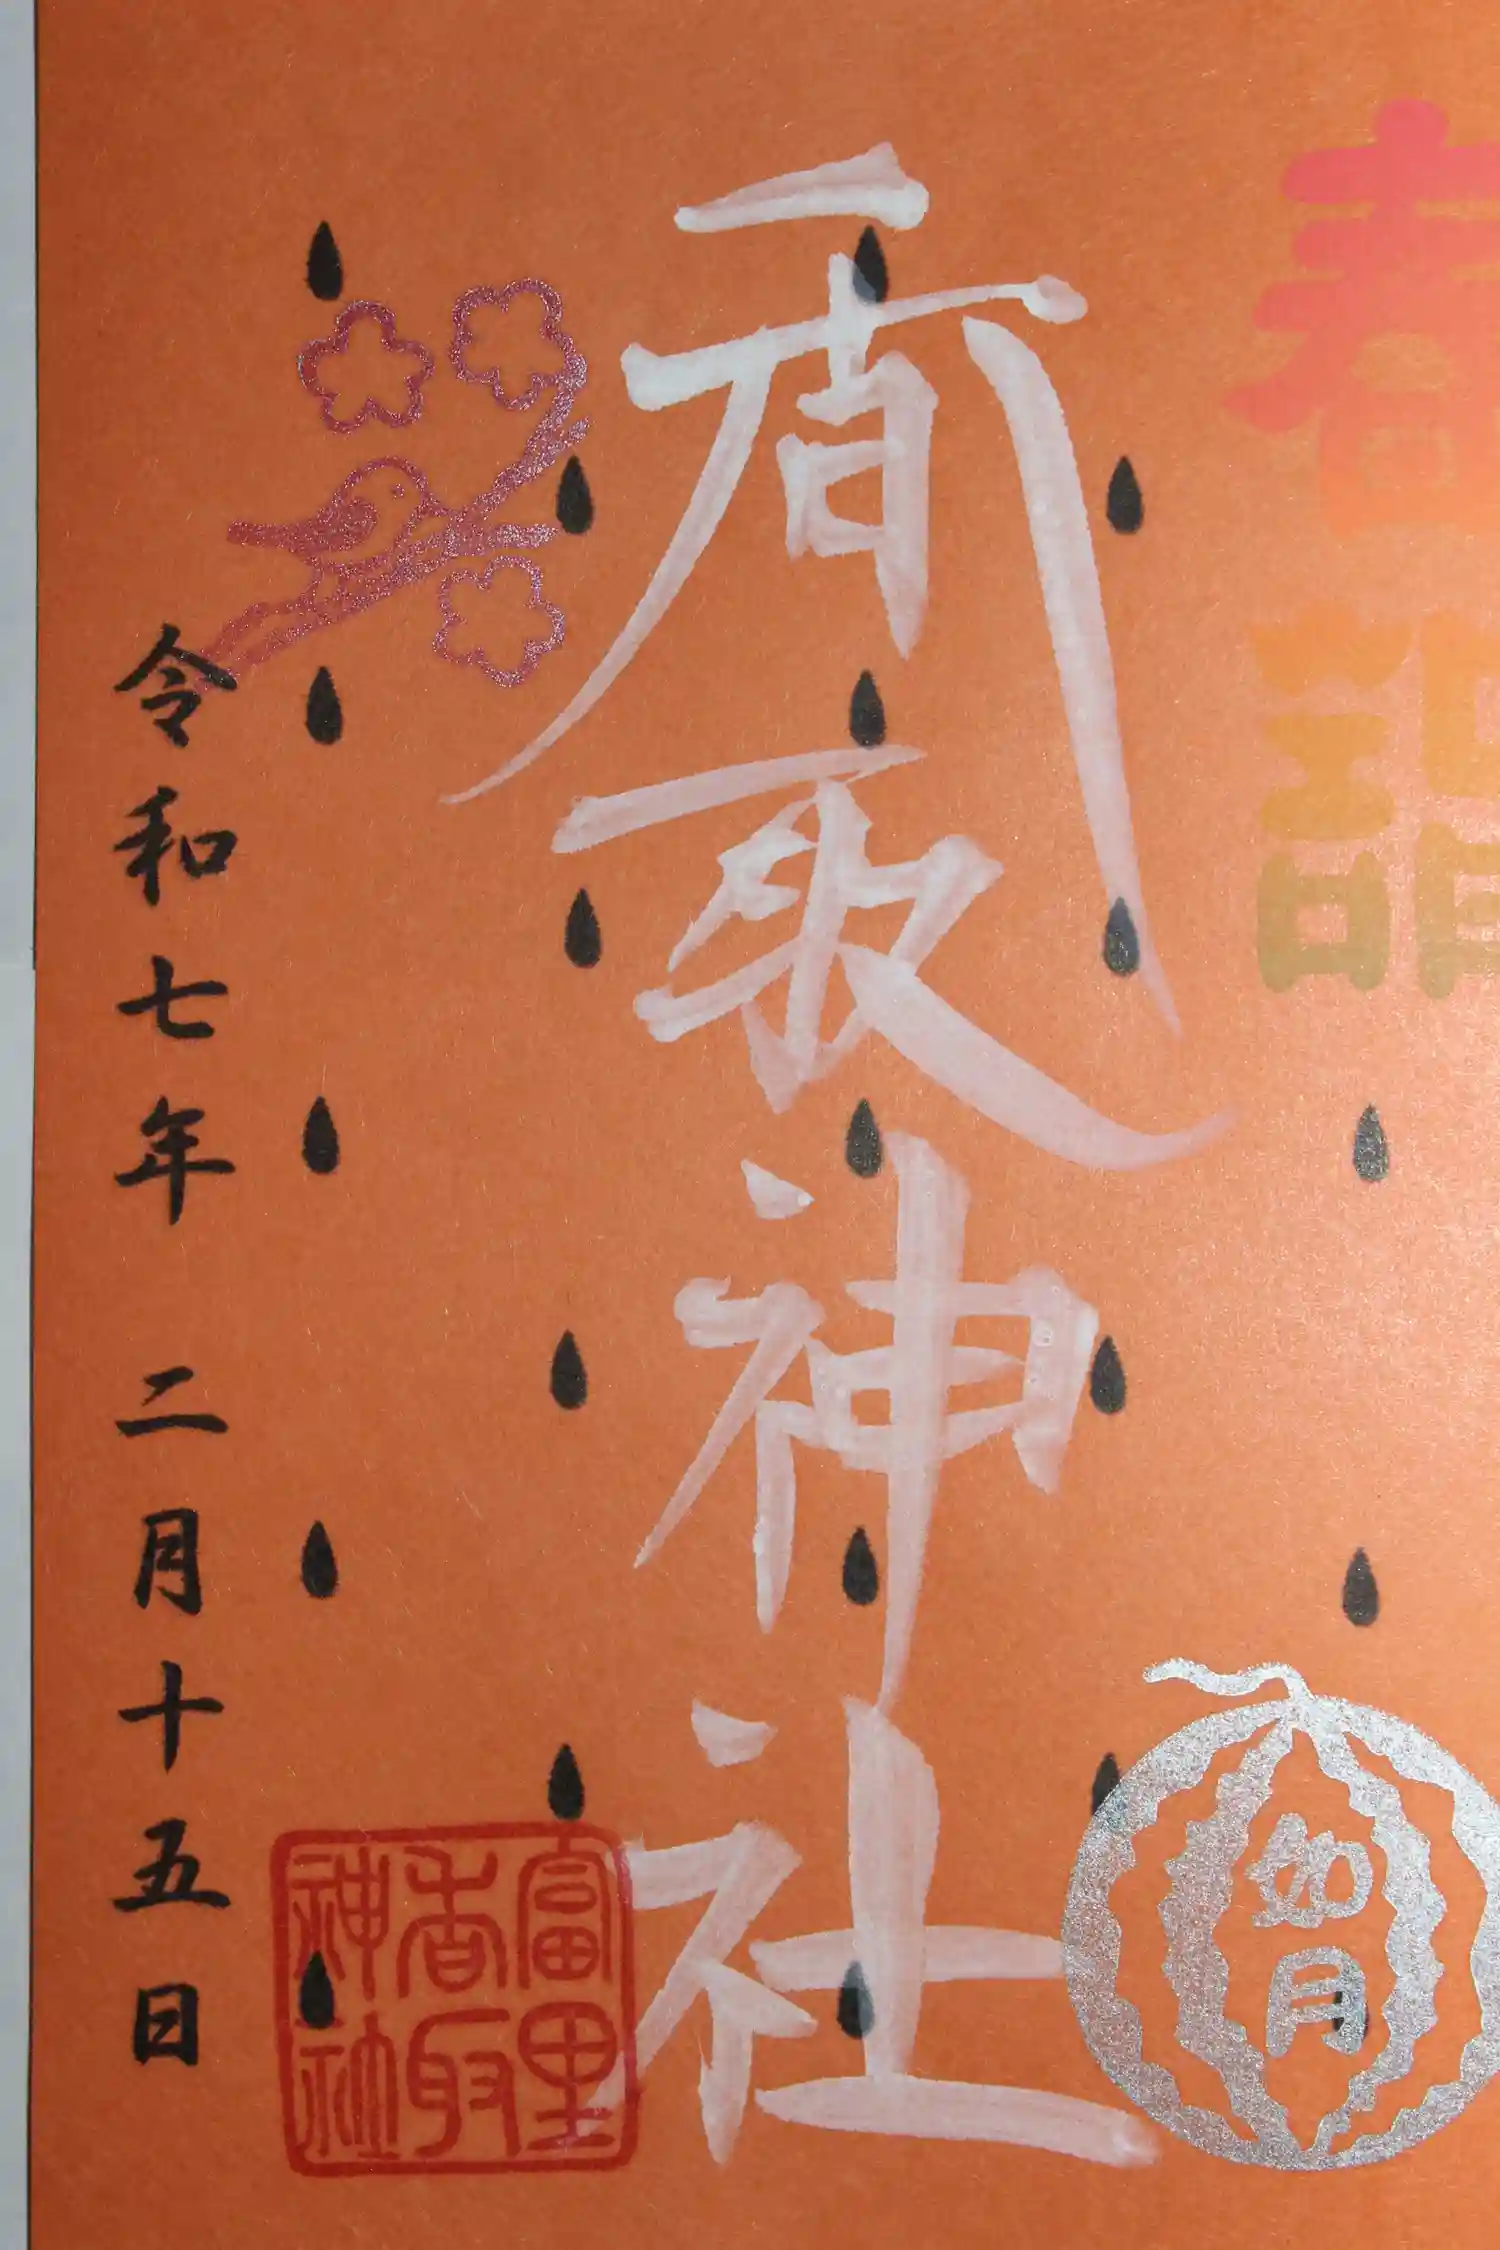 春詣
如月
香取神社
富里
香取
神社
令和七年 二月十五日